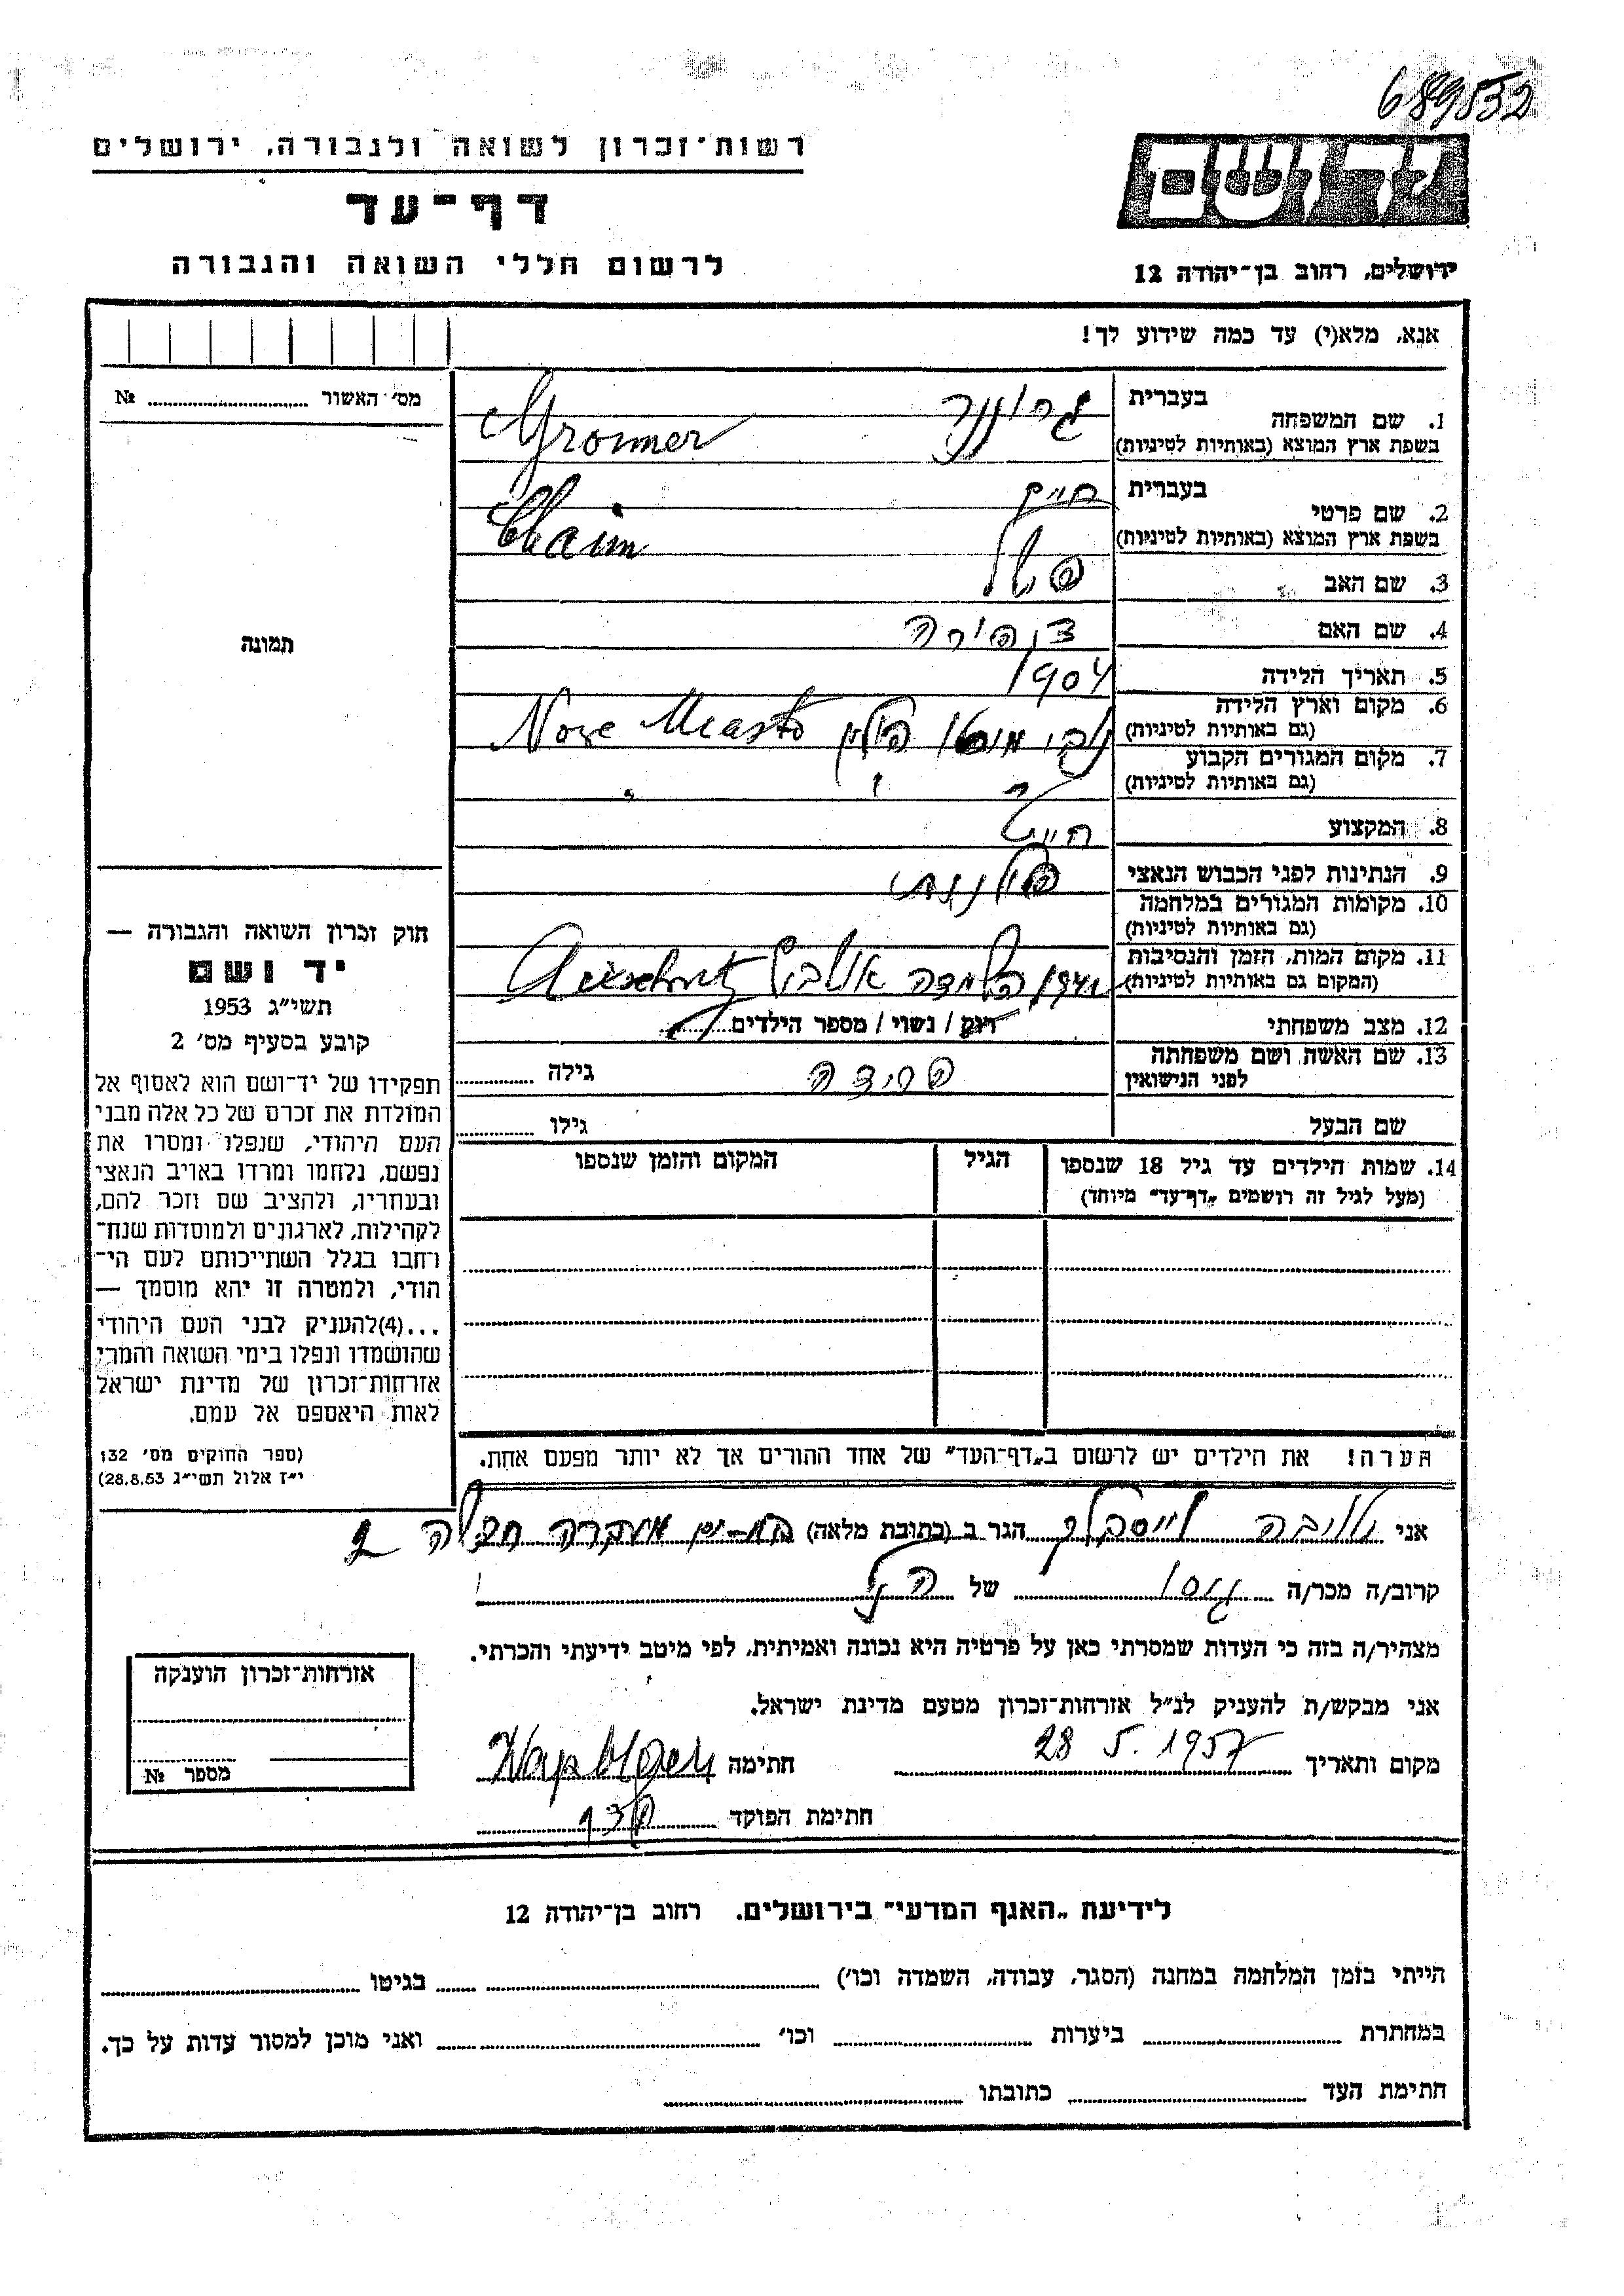 689532
רשות־זכרון לשואה ולגבורה, ירושלים
דף־עד
לרשום חללי השואה והגבורה
יד ושם
ירושלים, רחוב בן־יהודה 12
אנא, מלא(י) עד כמה שידוע לך!
מס׳ האשור № 
תמונה
חוק זכרון השואה והגבורה —
יד ושם
תשי״ג 1953
קובע בסעיף מס׳ 2
תפקידו של יד־ושם הוא לאסוף אל
המולדת את זכרם של כל אלה מבני
העם היהודי, שנפלו ומסרו את
נפשם, נלחמו ומרדו באויב הנאצי
ובעוזריו, ולהציב שם וזכר להם,
לקהילות, לארגונים ולמוסדות שנח־
רחבו בגלל השתייכותם לעם הי־
הודי, ולמטרה זו יהא מוסמך —
...(4) להעניק לבני העם היהודי
שהושמדו ונפלו בימי השואה והמרי
אזרחות־זכרון של מדינת ישראל
לאות היאספם אל עמם.
(ספר החוקים מס׳ 132
י״ז אלול תשי״ג 28.8.53)
1. שם המשפחה בעברית
בשפת ארץ המוצא (באותיות לטיניות) Gronner
2. שם פרטי בעברית חיים
בשפת ארץ המוצא (באותיות לטיניות) Chaim
3. שם האב
4. שם האם
5. תאריך הלידה 1904
6. מקום וארץ הלידה (גם באותיות לטיניות) פולין Nove Miasto
7. מקום המגורים הקבוע (גם באותיות לטיניות) " " "
8. המקצוע חייט
9. הנתינות לפני הכבוש הנאצי פולנית
10. מקומות המגורים במלחמה (גם באותיות לטיניות)
11. מקום המות, הזמן והנסיבות (המקום גם באותיות לטיניות) השמדה
12. מצב משפחתי רוק / נשוי / מספר הילדים
13. שם האשה ושם משפחתה לפני הנישואין פרידה גילה
שם הבעל גילו
14. שמות הילדים עד גיל 18 שנספו הגיל המקום והזמן שנספו
(מעל לגיל זה רושמים „דף־עד״ מיוחד)
הערה! את הילדים יש לרשום ב„דף־העד״ של אחד ההורים אך לא יותר מפעם אחת.
אני הגר ב (כתובת מלאה)
קרוב/ה מכר/ה גיסו של הנ״ל
מצהיר/ה בזה כי העדות שמסרתי כאן על פרטיה היא נכונה ואמיתית, לפי מיטב ידיעתי והכרתי.
אני מבקש/ת להעניק לנ״ל אזרחות־זכרון מטעם מדינת ישראל.
מקום ותאריך 28 5. 1957 חתימה
חתימת הפוקד
אזרחות־זכרון הוענקה
מספר №
לידיעת „האגף המדעי״ בירושלים. רחוב בן־יהודה 12
הייתי בזמן המלחמה במחנה (הסגר, עבודה, השמדה וכו׳) בגיטו
במחתרת ביערות וכו׳ ואני מוכן למסור עדות על כך.
חתימת העד כתובתו